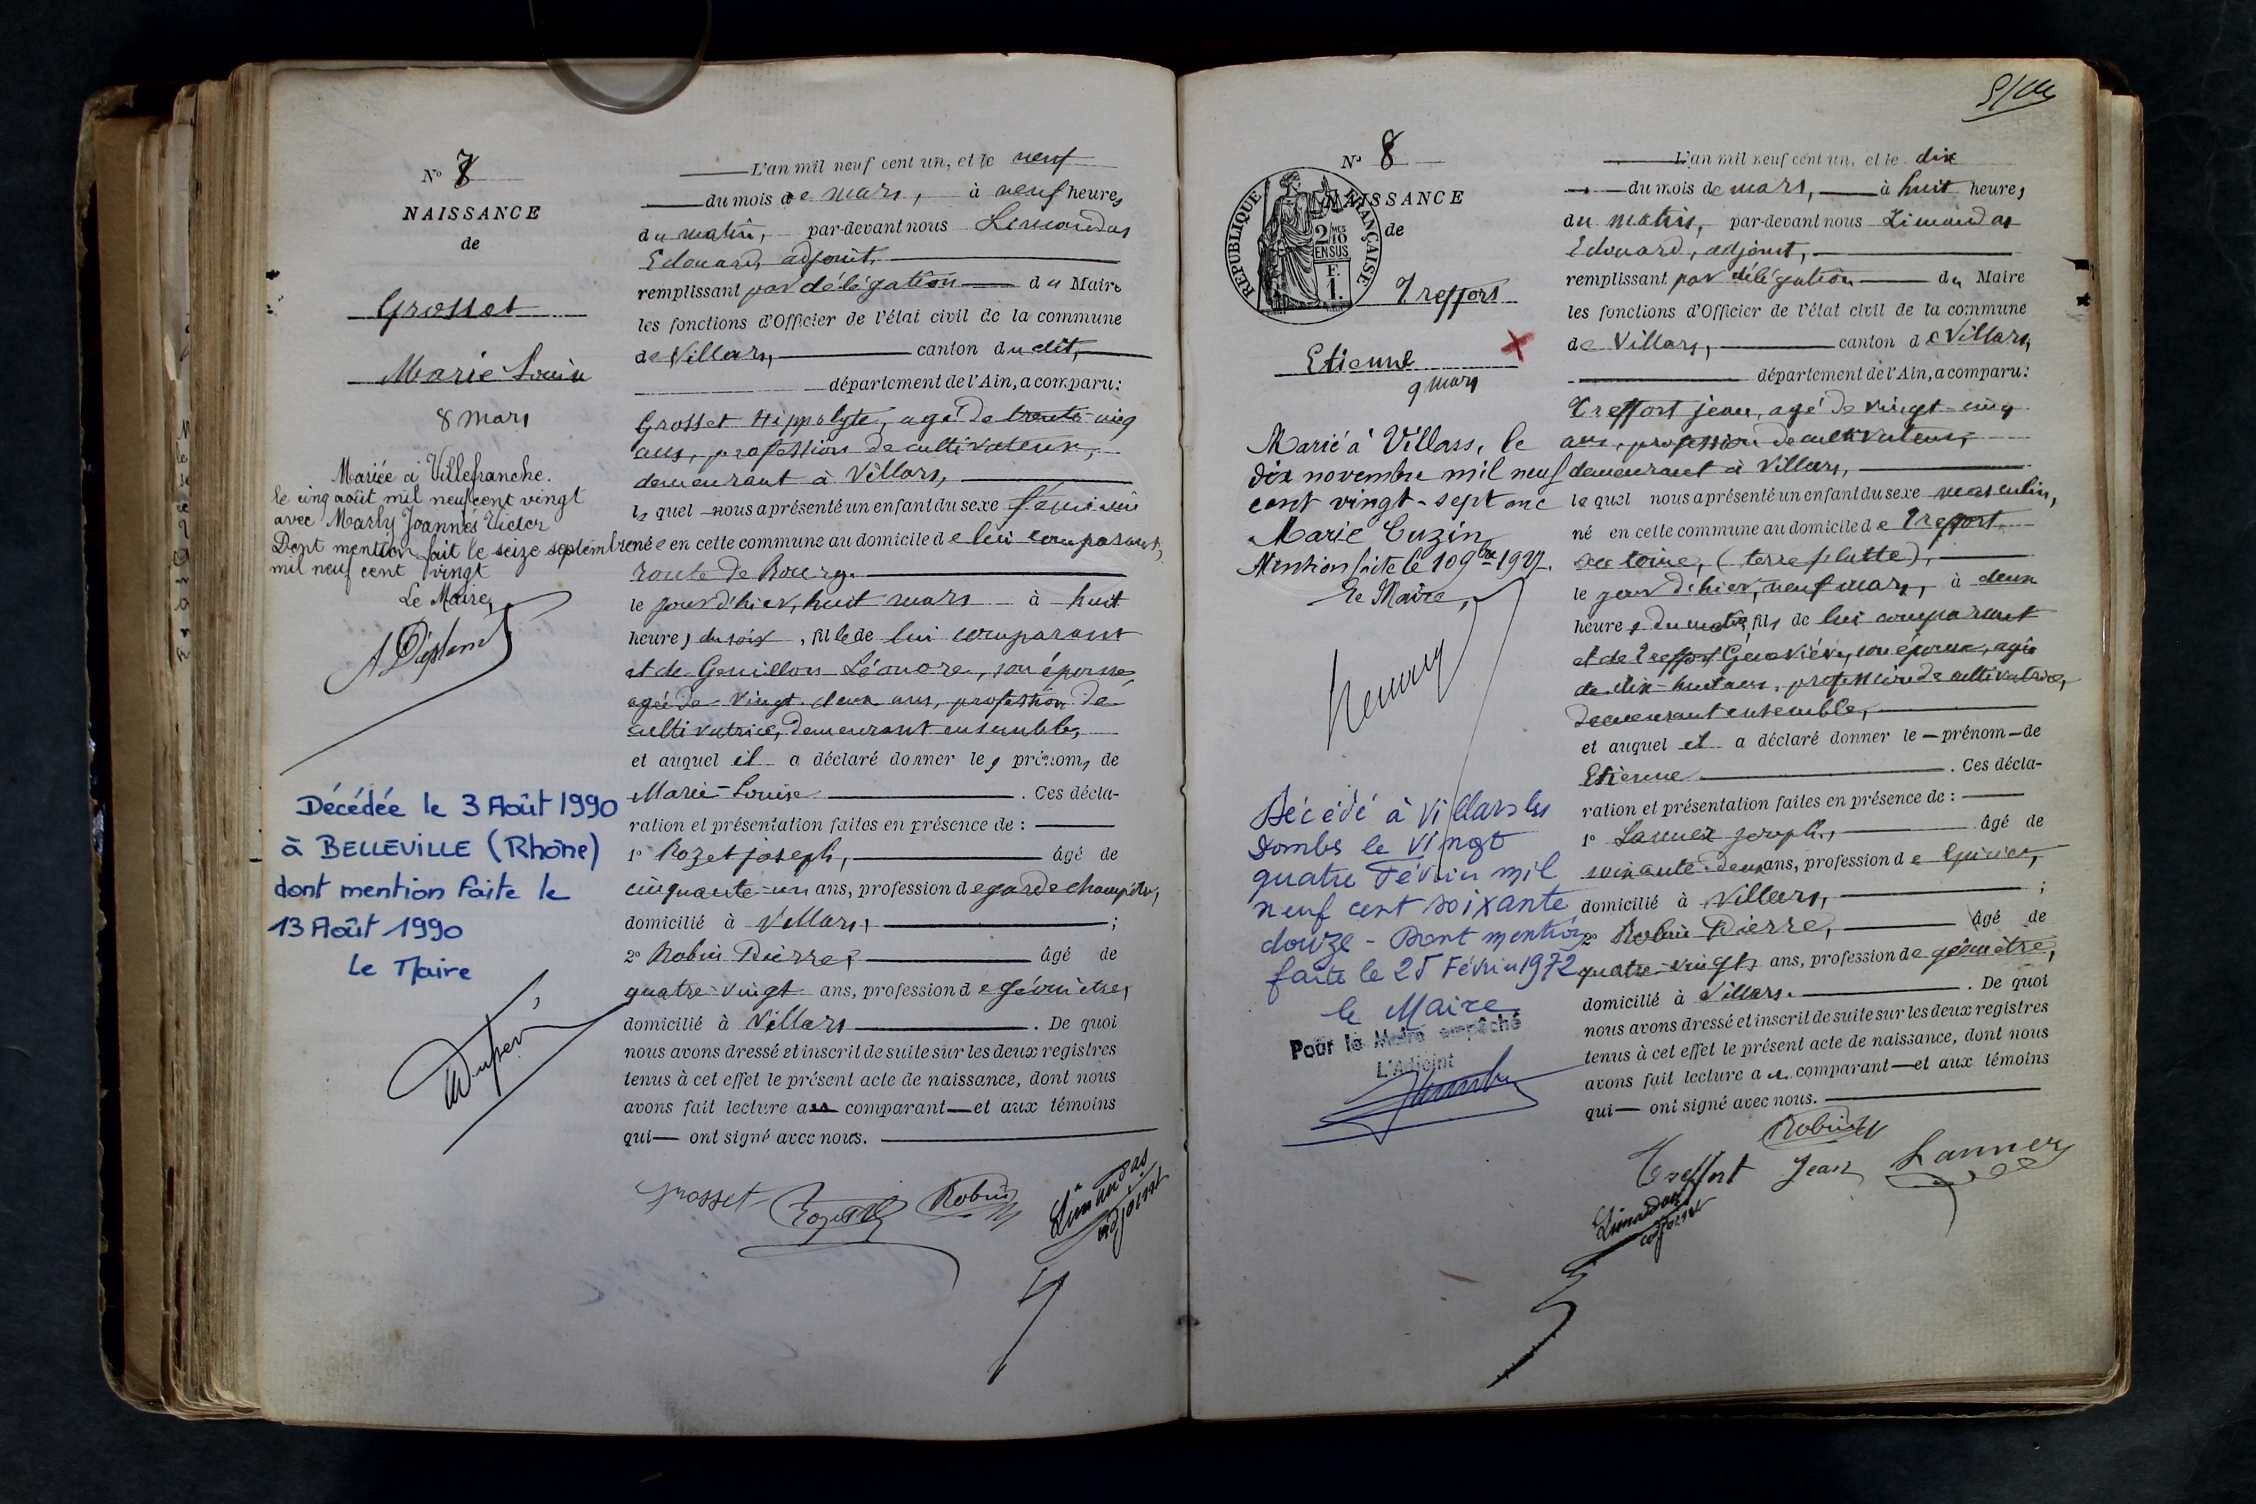 N° 7
NAISSANCE
de
Grosset
Marie Louise
8 mars
Mariée à Villefranche.
le cinq août mil neuf cent vingt
avec Marly Joannès Victor
Dont mention fait le seize septembre
mil neuf cent vingt
Le Maire,
Décédée le 3 Août 1990
à BELLEVILLE (Rhône)
dont mention faite le
13 Août 1990
Le Maire
L'an mil neuf cent un, et le neuf
du mois de mars, à neuf heures
du matin, par-devant nous Limandas
Edouard, adjoint,
remplissant par délégation du Maire
les fonctions d'Officier de l'état civil de la commune
de Villars, canton du dit,
département de l'Ain, a comparu:
Grosset Hippolyte, agé de trente-cinq
ans, profession de cultivateur,
demeurant à Villars,
lequel nous a présenté un enfant du sexe féminin
née en cette commune au domicile de lui comparant,
route de Bourg.
le jour d'hier, huit mars à huit
heures du soir, fille de lui comparant
et de Genillon Léonore, son épouse,
agée de vingt-deux ans, profession de
cultivatrice, demeurant ensemble,
et auquel il a déclaré donner les prénoms de
Marie-Louise. Ces décla-
ration et présentation faites en présence de :
1° Rozet joseph, âgé de
cinquante-un ans, profession de garde champêtre,
domicilié à Villars, ;
2° Robin Pierre, âgé de
quatre-vingt ans, profession de géomètre,
domicilié à Villars. De quoi
nous avons dressé et inscrit de suite sur les deux registres
tenus à cet effet le présent acte de naissance, dont nous
avons fait lecture au comparant et aux témoins
qui ont signé avec nous.
Grosset Rozet Robin Limandas
adjoint
N° 8
NAISSANCE
de
RÉPUBLIQUE FRANÇAISE
2/10 EN SUS
F.
1.
Treffort
Etienne
9 mars
Marié à Villars, le
dix novembre mil neuf
cent vingt-sept avec
Marie Cuzin
Mention faite le 10 9bre 1927.
Le Maire,
Décédé à Villars les
Dombes le vingt
quatre Février mil
neuf cent soixante
douze - Dont mention
faite le 25 Février 1972
le Maire
Pour le Maire empêché
L'Adjoint
L'an mil neuf cent un, et le dix
du mois de mars, à huit heures
du matin, par-devant nous Limandas
Edouard, adjoint,
remplissant par délégation du Maire
les fonctions d'Officier de l'état civil de la commune
de Villars, canton de Villars,
département de l'Ain, a comparu:
Treffort jean, agé de vingt-cinq
ans, profession de cultivateur,
demeurant à Villars,
lequel nous a présenté un enfant du sexe masculin,
né en cette commune au domicile de Treffort
(terre platte),
le jour d'hier, neuf mars, à deux
heures du matin, fils de lui comparant
et de Treffort Geneviève, son épouse, agée
de dix-huit ans, profession de cultivatrice,
demeurant ensemble,
et auquel il a déclaré donner le prénom de
Etienne. Ces décla-
ration et présentation faites en présence de :
1° Lanner joseph, âgé de
soixante-deux ans, profession d'épicier,
domicilié à Villars, ;
2° Robin Pierre, âgé de
quatre-vingts ans, profession de géomètre,
domicilié à Villars. De quoi
nous avons dressé et inscrit de suite sur les deux registres
tenus à cet effet le présent acte de naissance, dont nous
avons fait lecture au comparant et aux témoins
qui ont signé avec nous.
Robin
Treffort Jean Lanner
Limandas
adjoint